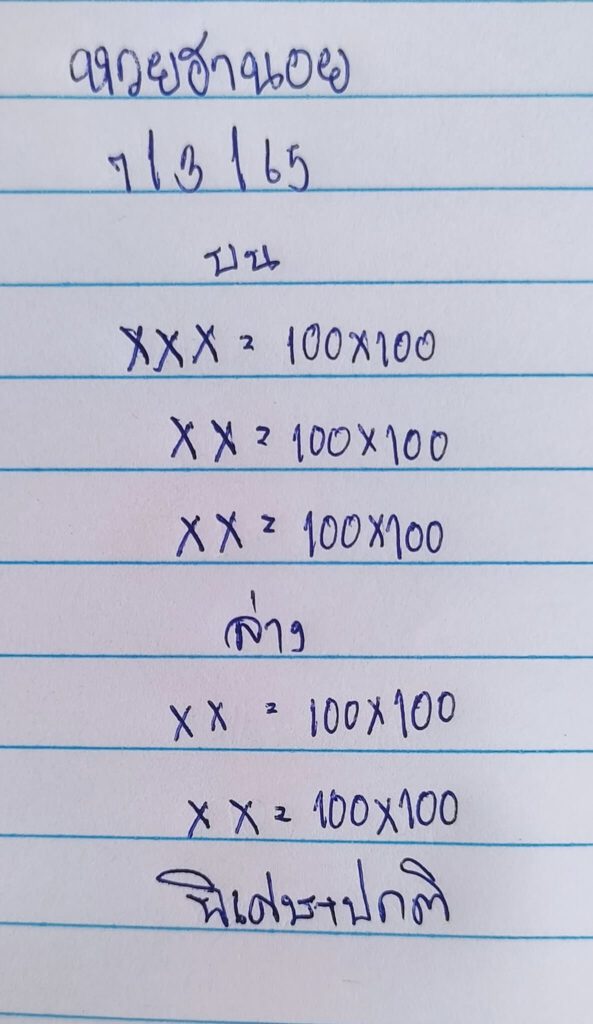 หวยฮานอย
7/3/65
บน
XXX = 100x100
XX = 100x100
XX = 100x100
ล่าง
XX = 100x100
XX = 100x100
พิเศษ+ปกติ